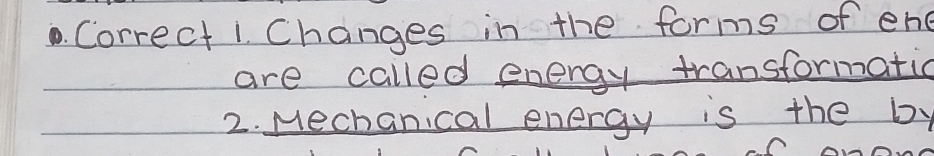 Correct 1. Changes in the forms of ene
are called energy transformatio
2. Mechanical energy is the by